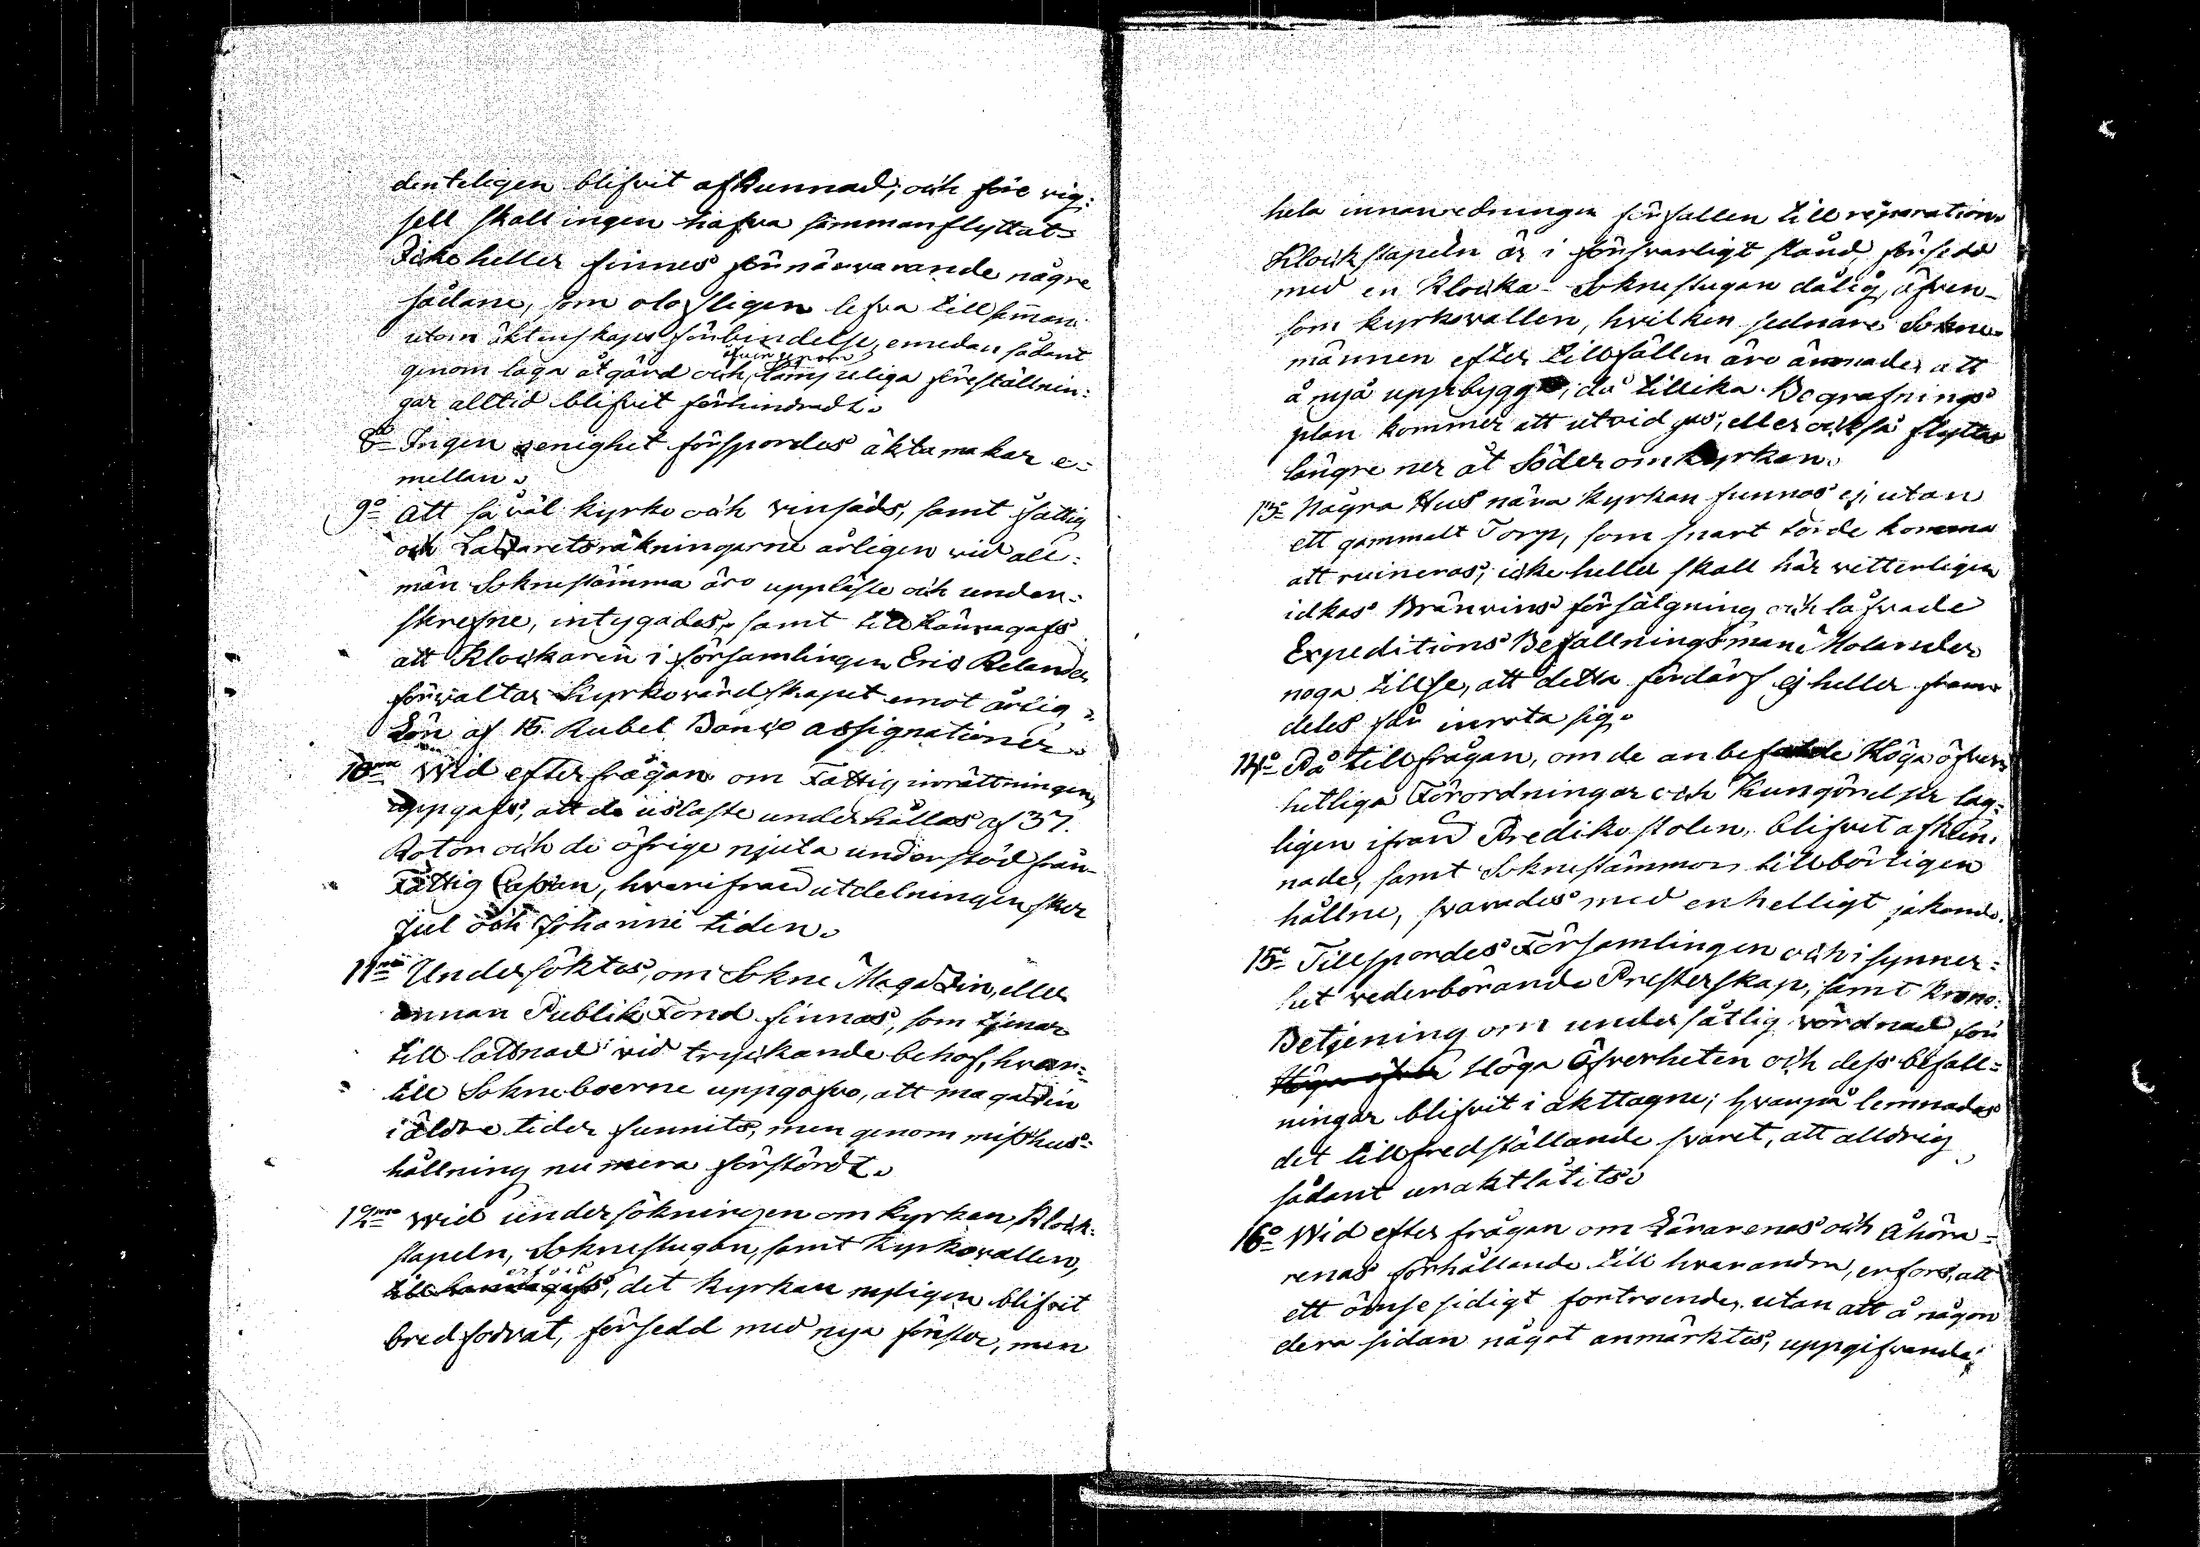 denteligen blifvit afkunnad; och före vig-
sell skall ingen hafva sammanflyttat.
Icke heller finnes för närvarande några
sådane, som olofligen lefva tillsamman
utom äktenskaps förbindelse, emedan sådant
genom laga åtgärd och äfven genom lämpeliga föreställnin-
gar alltid blifvit förhindradt.
8o Ingen oenighet förspordes äkta makar e-
mellan.
9o Att så väl kyrko och vinsäds, samt fattig
och Lazaretsräkningarne årligen vid all-
män Soknestämma äro uppläste och under-
skrefne, intygades, samt till känna gafs
att Klockaren i församlingen Eric Relander
förvaltar Kyrkovärdskapet emot årlig
Lön af 15. Rubel Banco assignationer.
10mo Wid efterfrågan om Fattig inrättningen,
uppgafs, att de uslaste underhållas af 37.
Rotor och de öfrige njuta understöd från
Fattig Cassan, hvarifrån utdelningen sker
Jul och Johanni tiden.
11mo Undersöktes, om Sokne Magazin, eller
annan Publik Fond finnas, som tjenar
till lättnad vid tryckande behof, hvar-
till Sokneboerne uppgofvo, att magazin
i äldre tider funnits, men genom misshus-
hållning numera förstördt.
12mo Wid undersökningen om kyrkan, Klock-
stapeln, Soknestugan, samt Kyrkovallen,
erfors, det kyrkan nyligen blifvit
bredfodrat, försedd med nya fönster, men
hela innanredningen förfallen till reparation.
Klockstapeln är i försvarligt stånd, försedd
med en Klocka. Soknestugan dålig, äfven-
som kyrkovallen, hvilken sednare Sokne-
männen efter tillfällen äro ämnade att
å nyå uppbygga, då tillika Begrafnings
plan kommer att utvidgas, eller också flyttas
längre ner åt Söder om kyrkan.
13o Några Hus nära kyrkan funnos ej, utan
ett gammalt Torp, som snart törde komma
att ruineras; icke heller skall här vitterligen
idkas Bränvins försälgning och lofvade
Expeditions Befallningsman Molander
noga tillse, att detta förderf ej heller fram-
deles får inrota sig.
14o På tillfrågan, om de anbefalde Höga öfver-
hetliga Förordningar och Kungörelser lag-
ligen ifrån Prediko stolen blifvit afkun-
nade, samt Soknestämmor tillbörligen
hållne, svarades med enhelligt jakande.
15o Tillspordes Församlingen och i synner-
het vederbörande Presterskap, samt Krono-
Betjening om undersåtlig vördnad för
Höga Öfverheten och dess befall-
ningar blifvit i akttagne; hvarpå lemnades
det tillfredställande svaret, att alldrig
sådant uraktlåtits.
16o Wid efter frågan om Lärarenas och Åhöra-
renas förhållande till hvarandra, erfors, att
ett ömsesidigt förtroende, utan att å någon
dera sidan något anmärktes, uppgifvande